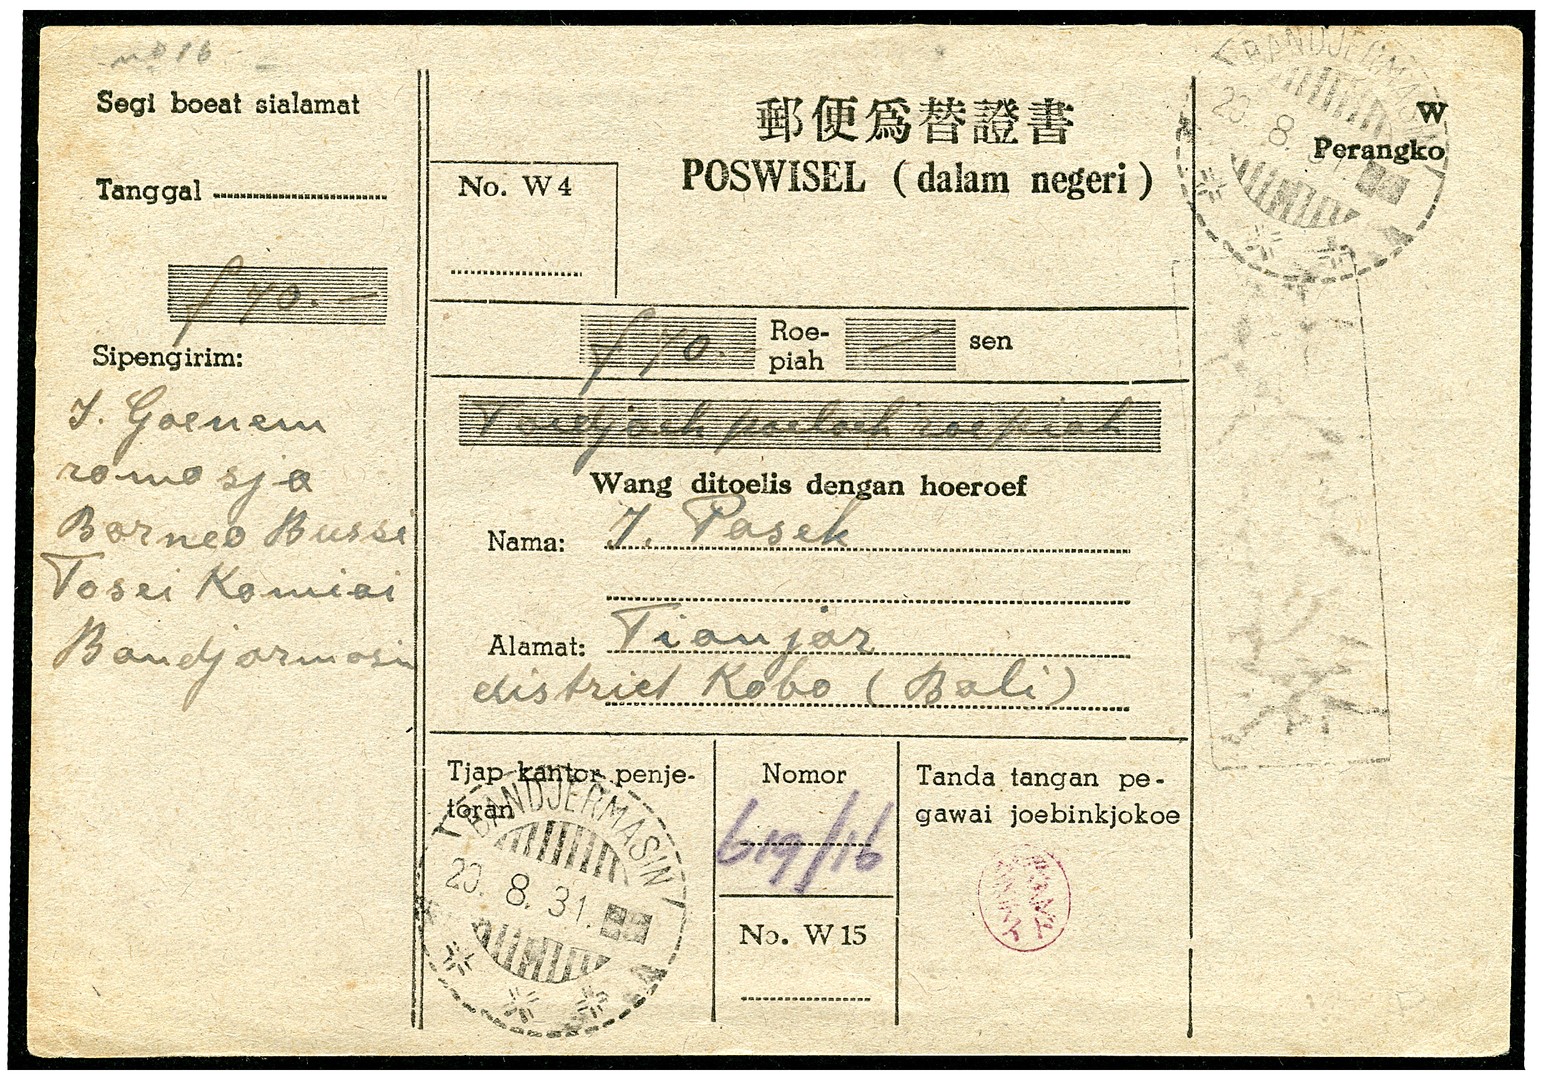 no 16
Segi boeat sialamat
Tanggal
f 70.—
Sipengirim:
I. Goenem
romosja
Borneo Bussi
Tosei Komiai
Bandjarmasin
郵便爲替證書
POSWISEL (dalam negeri)
No. W 4
f 70. Roe-
piah — sen
Toedjoeh poeloeh roepiah
Wang ditoelis dengan hoeroef
Nama: I. Pasek
Alamat: Tianjar
district Kobo (Bali)
Tjap kantor penje-
toran
BANDJERMASIN
20. 8. 31.
Nomor
619/16
No. W 15
Tanda tangan pe-
gawai joebinkjokoe
W
Perangko
BANDJERMASIN
20. 8.